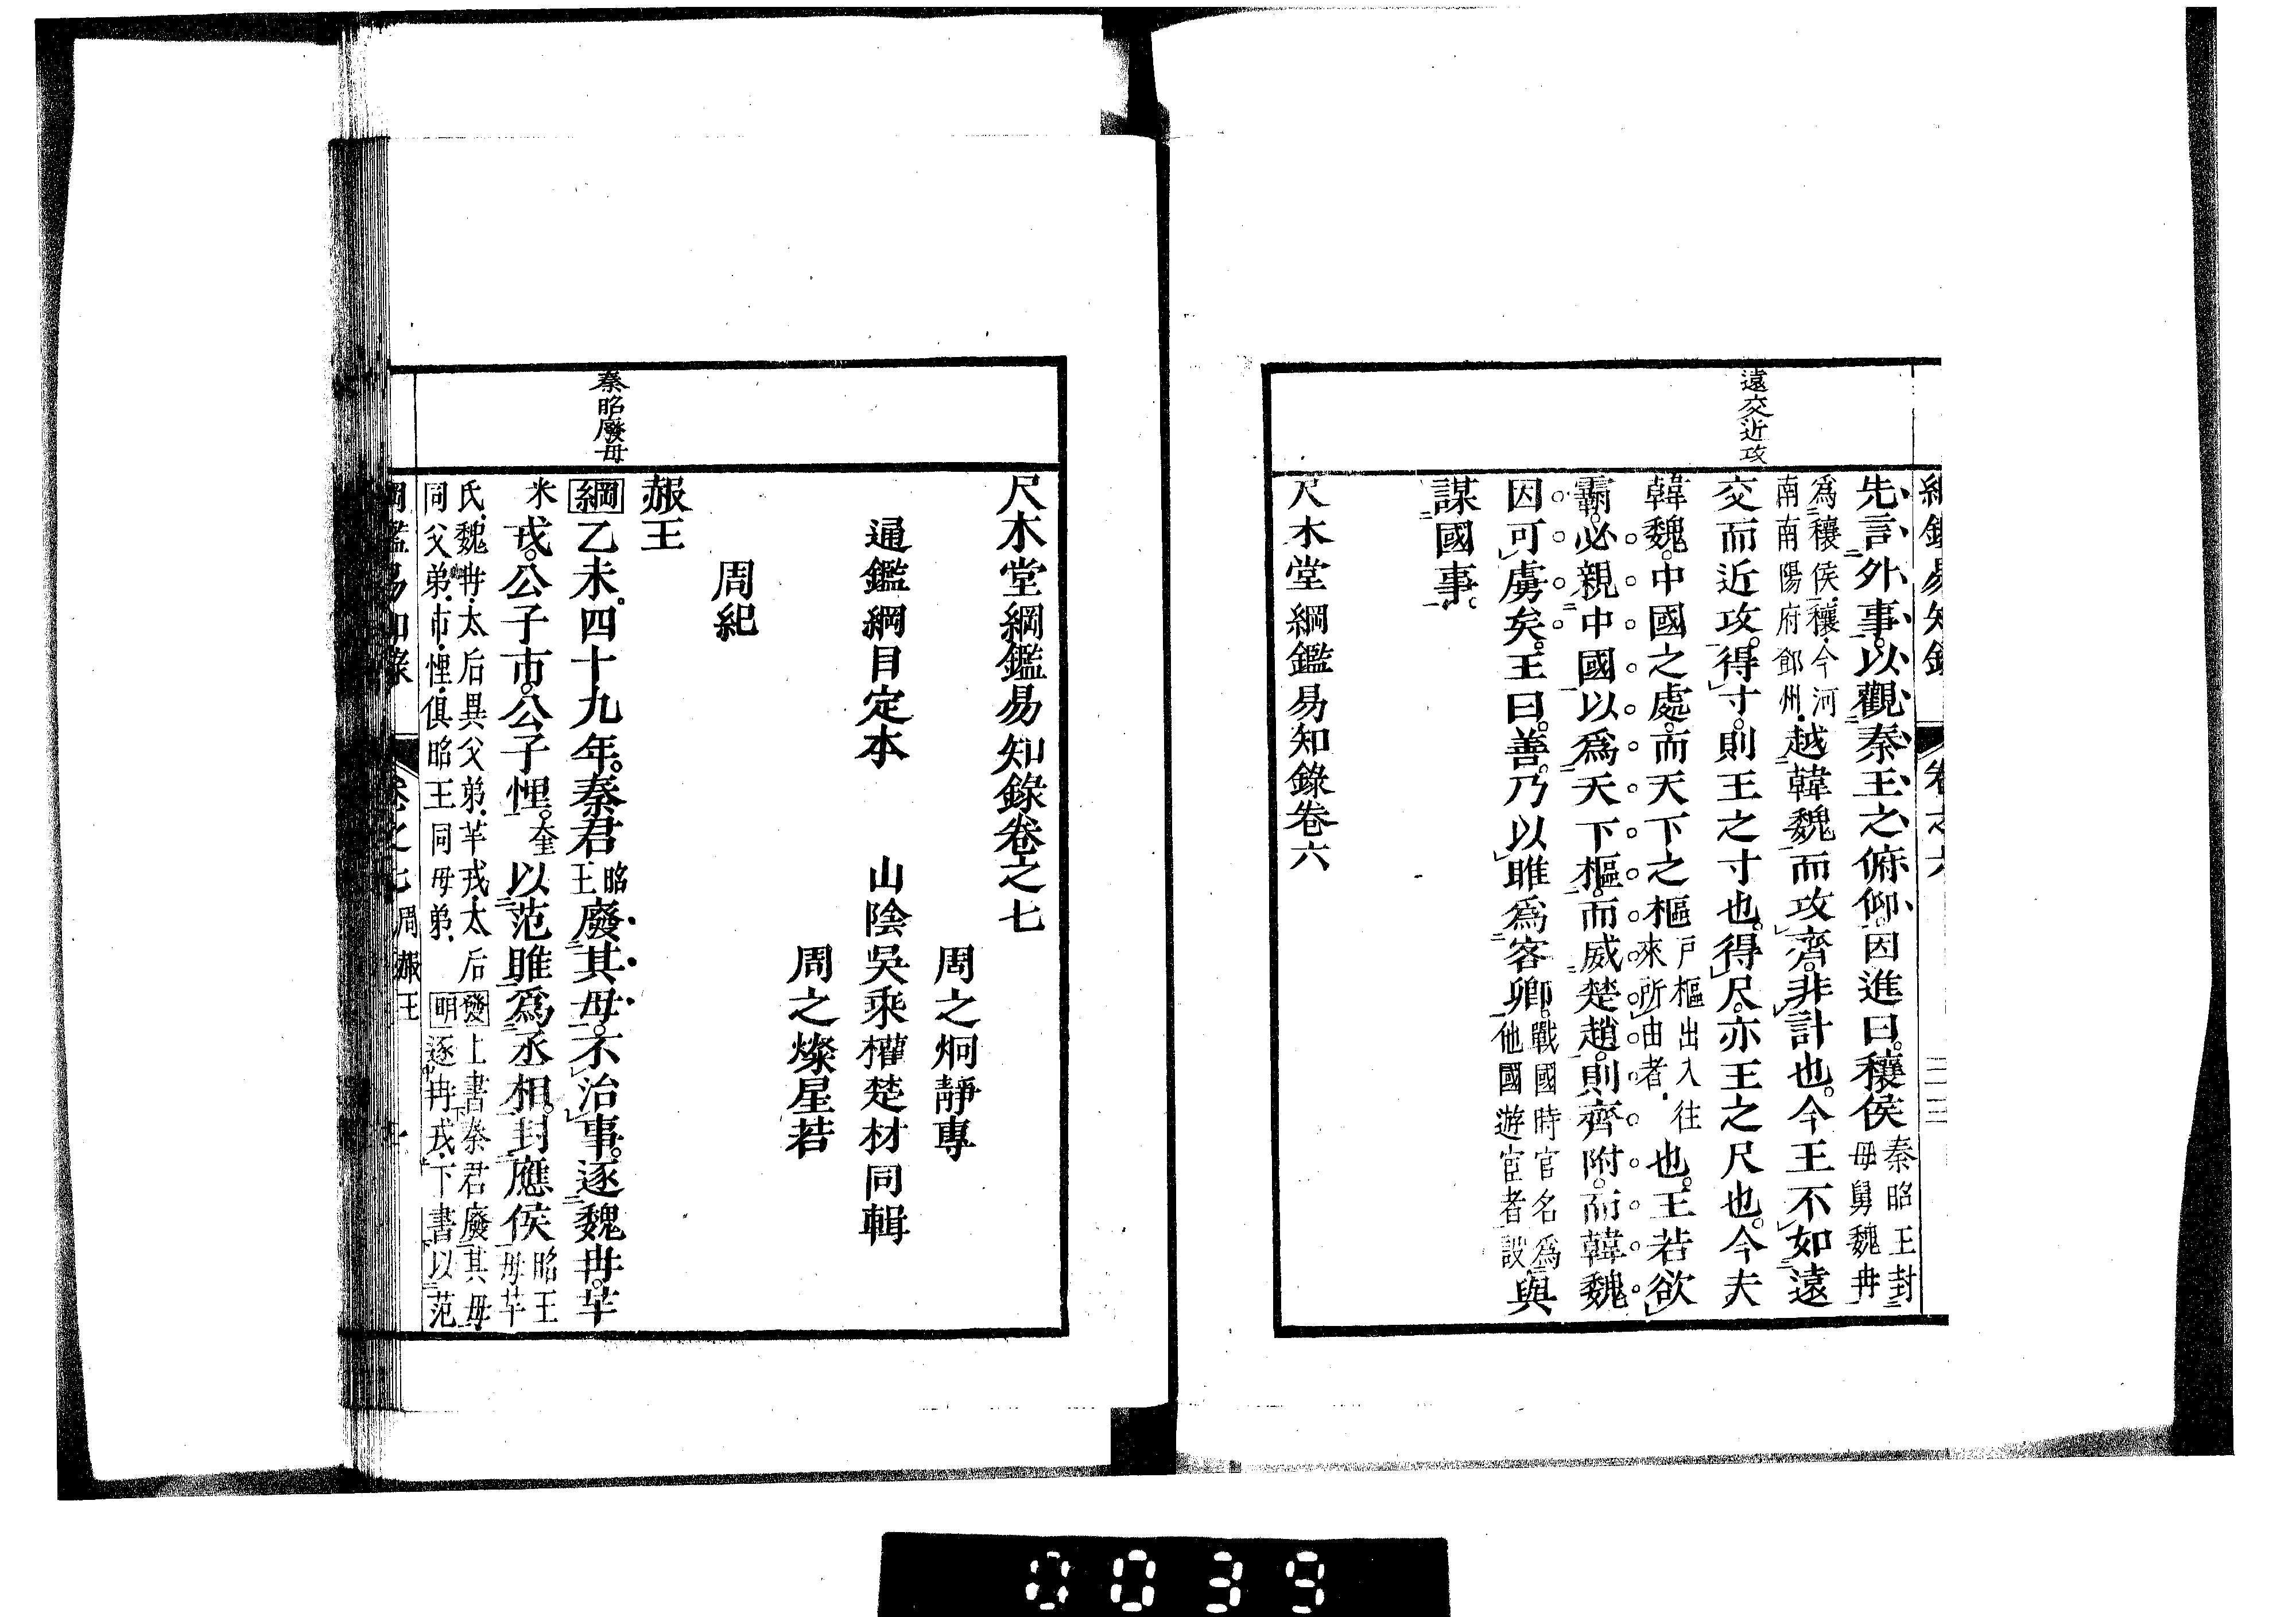 遠交近攻
先言外事。以觀秦王之俯仰。因進曰。穰侯秦昭王封母舅魏冉
爲穰侯。穰。今河南南陽府鄧州。越韓魏而攻齊。非計也。今王不如遠
交而近攻。得寸。則王之寸也。得尺。亦王之尺也。今夫
韓魏。中國之處。而天下之樞戸樞出入往來所由者。也。王若欲
霸。必親中國以爲天下樞。而威楚趙。則齊附。而韓魏
因可虜矣。王曰。善。乃以雎爲客卿。戰國時官名爲他國遊宦者設與
謀國事。
尺木堂綱鑑易知錄卷六
尺木堂綱鑑易知錄卷之七
周之炯靜專
通鑑綱目定本 山陰吳乘權楚材同輯
周之燦星若
周紀
赧王
秦昭廢母
綱乙未。四十九年。秦君昭王廢其母。不治事。逐魏冉。芈
米戎。公子市。公子悝。奎以范雎爲丞相。封應侯昭王母芈
氏。魏冉。太后異父弟。芈戎。太后同父弟。市。悝。俱昭王同母弟。發明上書秦君廢其母逐冉戎。下書以范
周赧王
0039